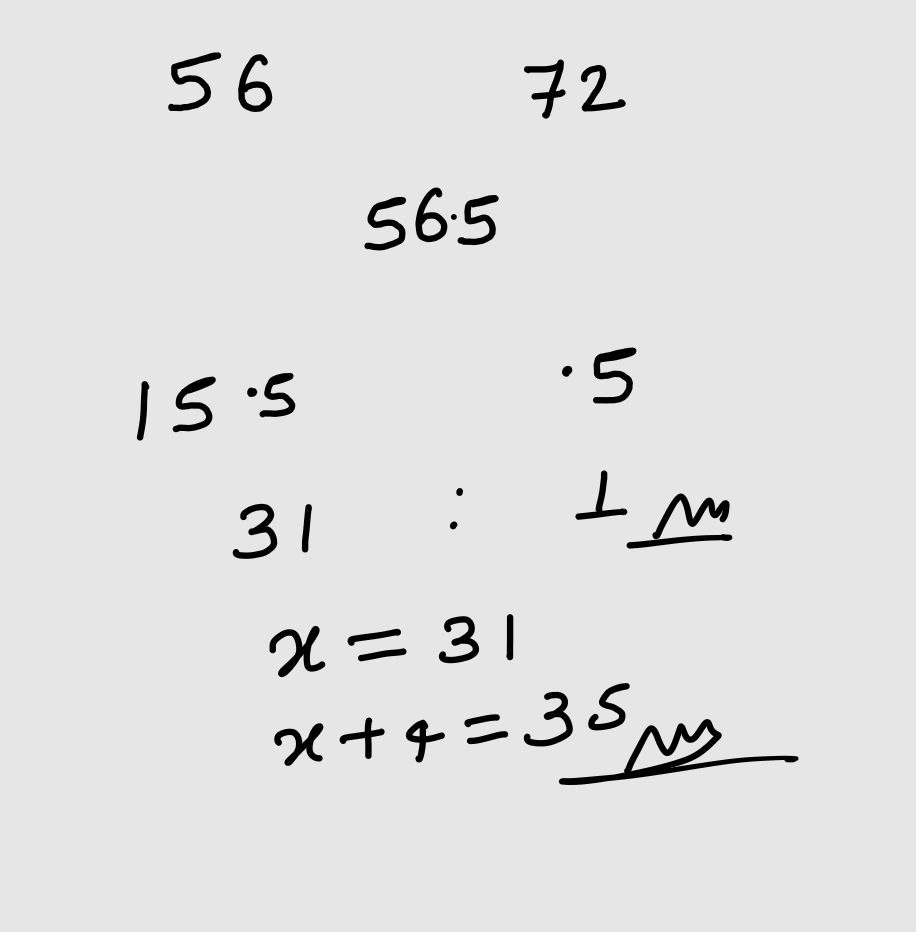 56 72
56.5
15.5 .5
31 : 1
x = 31
x + 4 = 35